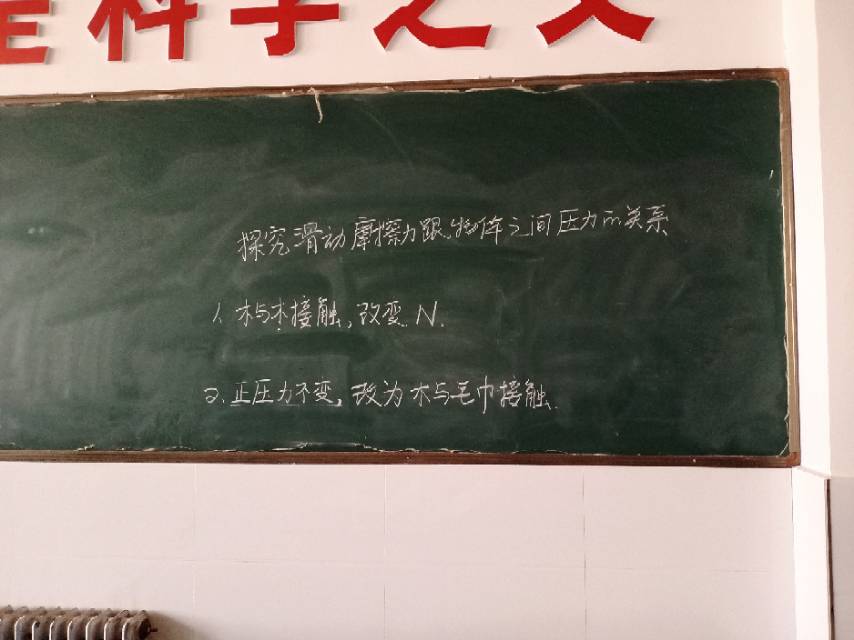 是科学之父
探究滑动摩擦力跟物体之间压力的关系
1、木与木接触,改变N.
2.正压力不变,改为木与毛巾接触.